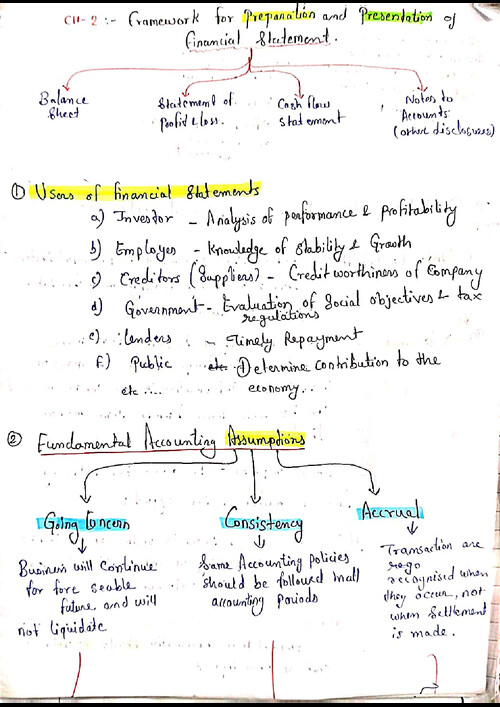 CH-2 :- Framework for Preparation and Presentation of
Financial Statement.
Balance Sheet
Statement of Profit & loss.
Cash flow Statement
Notes to Accounts (other disclosures)
① Users of financial Statements
a) Investor - Analysis of performance & profitability
b) Employees - Knowledge of Stability & Growth
c) Creditors (Suppliers) - Credit worthiness of Company
d) Government - Evaluation of Social objectives & tax
regulations
e) Lenders - Timely Repayment
f) Public etc Determine contribution to the
etc .... economy...
② Fundamental Accounting Assumptions
Going Concern
Business will continue
for fore seable
future and will
not liquidate
Consistency
Same Accounting policies
should be followed in all
accounting periods
Accrual
Transaction are
recognised when
they occur, not
when Settlement
is made.